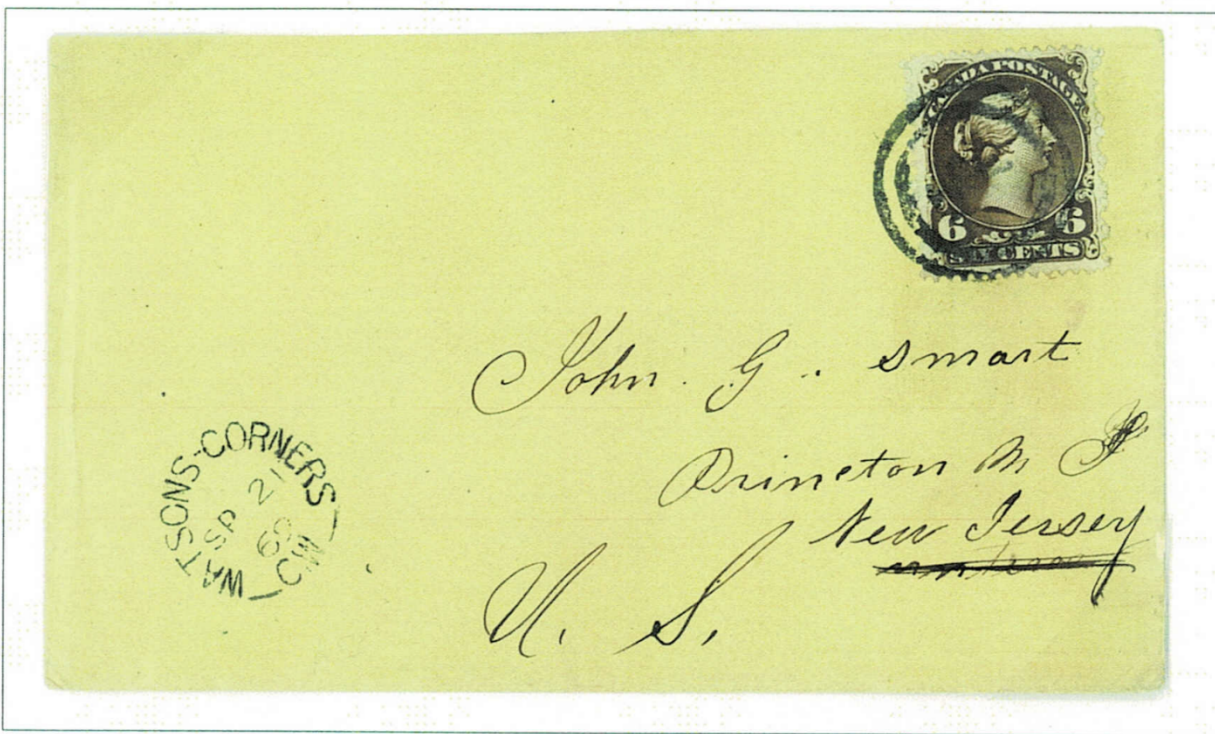 CANADA POSTAGE
6 6
SIX CENTS
John. G. Smart
Princeton N J
New Jersey
U. S.
WATSONS-CORNERS
SP 2
69
C.W